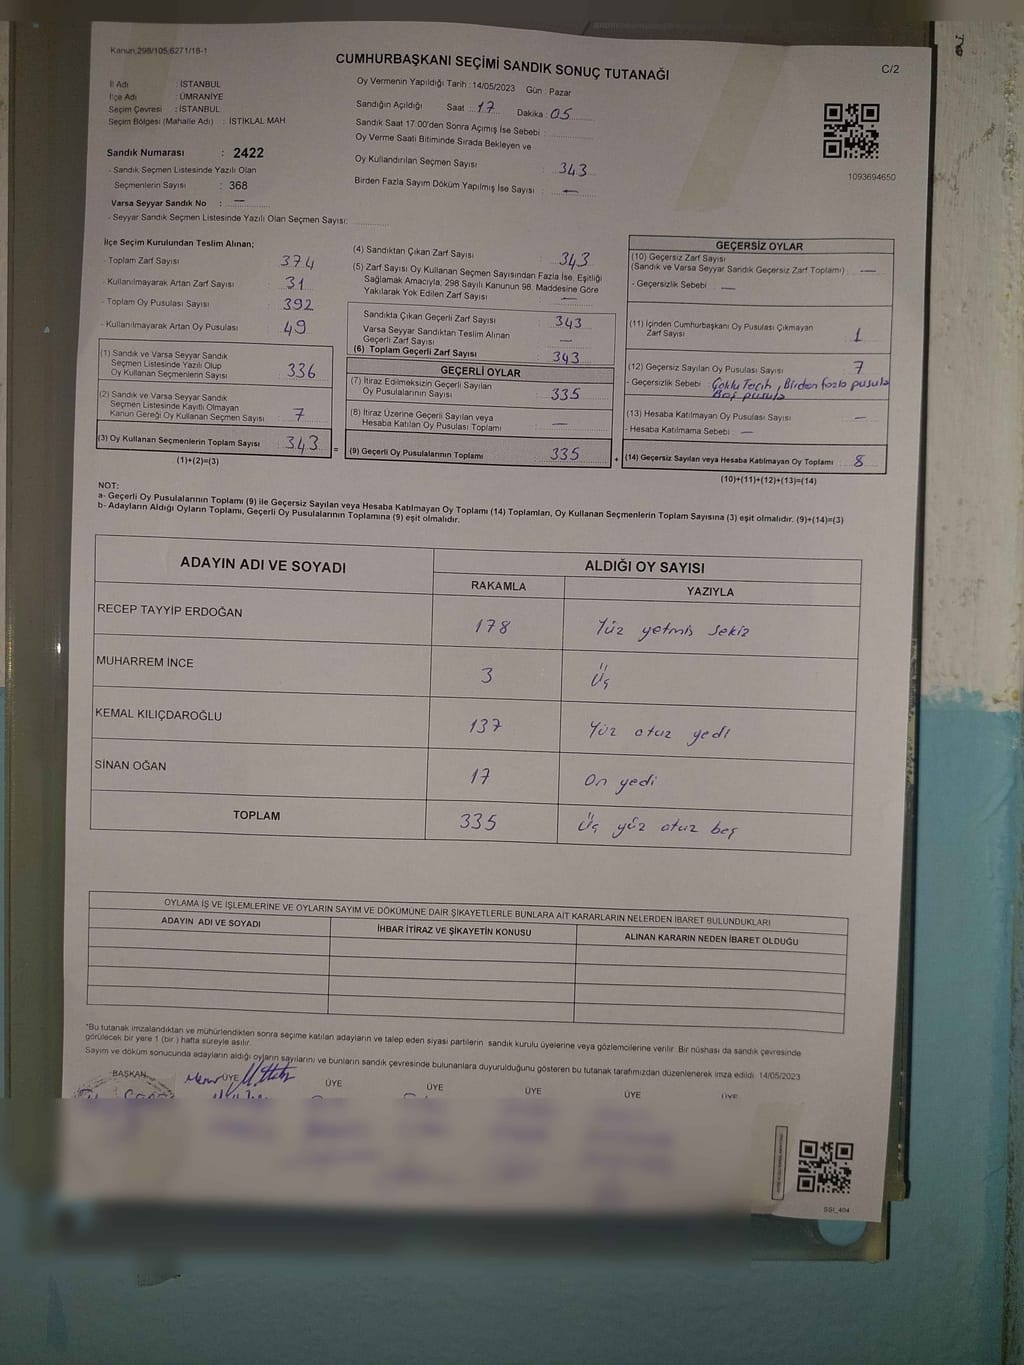 Kanun,298/105,6271/18-1
CUMHURBAŞKANI SEÇİMİ SANDIK SONUÇ TUTANAĞI
C/2
İl Adı : İSTANBUL
İlçe Adı : ÜMRANİYE
Seçim Çevresi : İSTANBUL
Seçim Bölgesi (Mahalle Adı) : İSTİKLAL MAH
Sandık Numarası : 2422
- Sandık Seçmen Listesinde Yazılı Olan
Seçmenlerin Sayısı : 368
Varsa Seyyar Sandık No : —
- Seyyar Sandık Seçmen Listesinde Yazılı Olan Seçmen Sayısı:
Oy Vermenin Yapıldığı Tarih : 14/05/2023 Gün : Pazar
Sandığın Açıldığı Saat : 17 Dakika : 05
Sandık Saat 17:00'den Sonra Açımış İse Sebebi :
Oy Verme Saati Bitiminde Sırada Bekleyen ve
Oy Kullandırılan Seçmen Sayısı : 343
Birden Fazla Sayım Döküm Yapılmış İse Sayısı : —
1093694650
İlçe Seçim Kurulundan Teslim Alınan;
- Toplam Zarf Sayısı : 374
- Kullanılmayarak Artan Zarf Sayısı : 31
- Toplam Oy Pusulası Sayısı : 392
- Kullanılmayarak Artan Oy Pusulası : 49
(1) Sandık ve Varsa Seyyar Sandık
Seçmen Listesinde Yazılı Olup
Oy Kullanan Seçmenlerin Sayısı : 336
(2) Sandık ve Varsa Seyyar Sandık
Seçmen Listesinde Kayıtlı Olmayan
Kanun Gereği Oy Kullanan Seçmen Sayısı : 7
(3) Oy Kullanan Seçmenlerin Toplam Sayısı : 343 =
(1)+(2)=(3)
(4) Sandıktan Çıkan Zarf Sayısı : 343
(5) Zarf Sayısı Oy Kullanan Seçmen Sayısından Fazla İse, Eşitliği
Sağlamak Amacıyla; 298 Sayılı Kanunun 98. Maddesine Göre
Yakılarak Yok Edilen Zarf Sayısı : —
Sandıkta Çıkan Geçerli Zarf Sayısı : 343
Varsa Seyyar Sandıktan Teslim Alınan
Geçerli Zarf Sayısı : —
(6) Toplam Geçerli Zarf Sayısı : 343
GEÇERLİ OYLAR
(7) İtiraz Edilmeksizin Geçerli Sayılan
Oy Pusulalarının Sayısı : 335
(8) İtiraz Üzerine Geçerli Sayılan veya
Hesaba Katılan Oy Pusulası Toplamı : —
(9) Geçerli Oy Pusulalarının Toplamı : 335 +
GEÇERSİZ OYLAR
(10) Geçersiz Zarf Sayısı
(Sandık ve Varsa Seyyar Sandık Geçersiz Zarf Toplamı) : —
- Geçersizlik Sebebi : —
(11) İçinden Cumhurbaşkanı Oy Pusulası Çıkmayan
Zarf Sayısı : 1
(12) Geçersiz Sayılan Oy Pusulası Sayısı : 7
- Geçersizlik Sebebi : Çoklu Tercih, Birden fazla pusula
Boş pusula
(13) Hesaba Katılmayan Oy Pusulası Sayısı : —
- Hesaba Katılmama Sebebi : —
(14) Geçersiz Sayılan veya Hesaba Katılmayan Oy Toplamı : 8
(10)+(11)+(12)+(13)=(14)
NOT:
a- Geçerli Oy Pusulalarının Toplamı (9) ile Geçersiz Sayılan veya Hesaba Katılmayan Oy Toplamı (14) Toplamları, Oy Kullanan Seçmenlerin Toplam Sayısına (3) eşit olmalıdır. (9)+(14)=(3)
b- Adayların Aldığı Oyların Toplamı, Geçerli Oy Pusulalarının Toplamına (9) eşit olmalıdır.
ADAYIN ADI VE SOYADI ALDIĞI OY SAYISI
RAKAMLA YAZIYLA
RECEP TAYYİP ERDOĞAN 178 Yüz yetmis sekiz
MUHARREM İNCE 3 Üç
KEMAL KILIÇDAROĞLU 137 Yüz otuz yedi
SİNAN OĞAN 17 On yedi
TOPLAM 335 Üç yüz otuz beş
OYLAMA İŞ VE İŞLEMLERİNE VE OYLARIN SAYIM VE DÖKÜMÜNE DAİR ŞİKAYETLERLE BUNLARA AİT KARARLARIN NELERDEN İBARET BULUNDUKLARI
ADAYIN ADI VE SOYADI İHBAR İTİRAZ VE ŞİKAYETİN KONUSU ALINAN KARARIN NEDEN İBARET OLDUĞU
*Bu tutanak imzalandıktan ve mühürlendikten sonra seçime katılan adayların ve talep eden siyasi partilerin sandık kurulu üyelerine veya gözlemcilerine verilir. Bir nüshası da sandık çevresinde
görülecek bir yere 1 (bir) hafta süreyle asılır.
Sayım ve döküm sonucunda adayların aldığı oyların sayılarını ve bunların sandık çevresinde bulunanlara duyurulduğunu gösteren bu tutanak tarafımızdan düzenlenerek imza edildi. 14/05/2023
BAŞKAN Memur ÜYE ÜYE ÜYE ÜYE ÜYE ÜYE
SSI_404